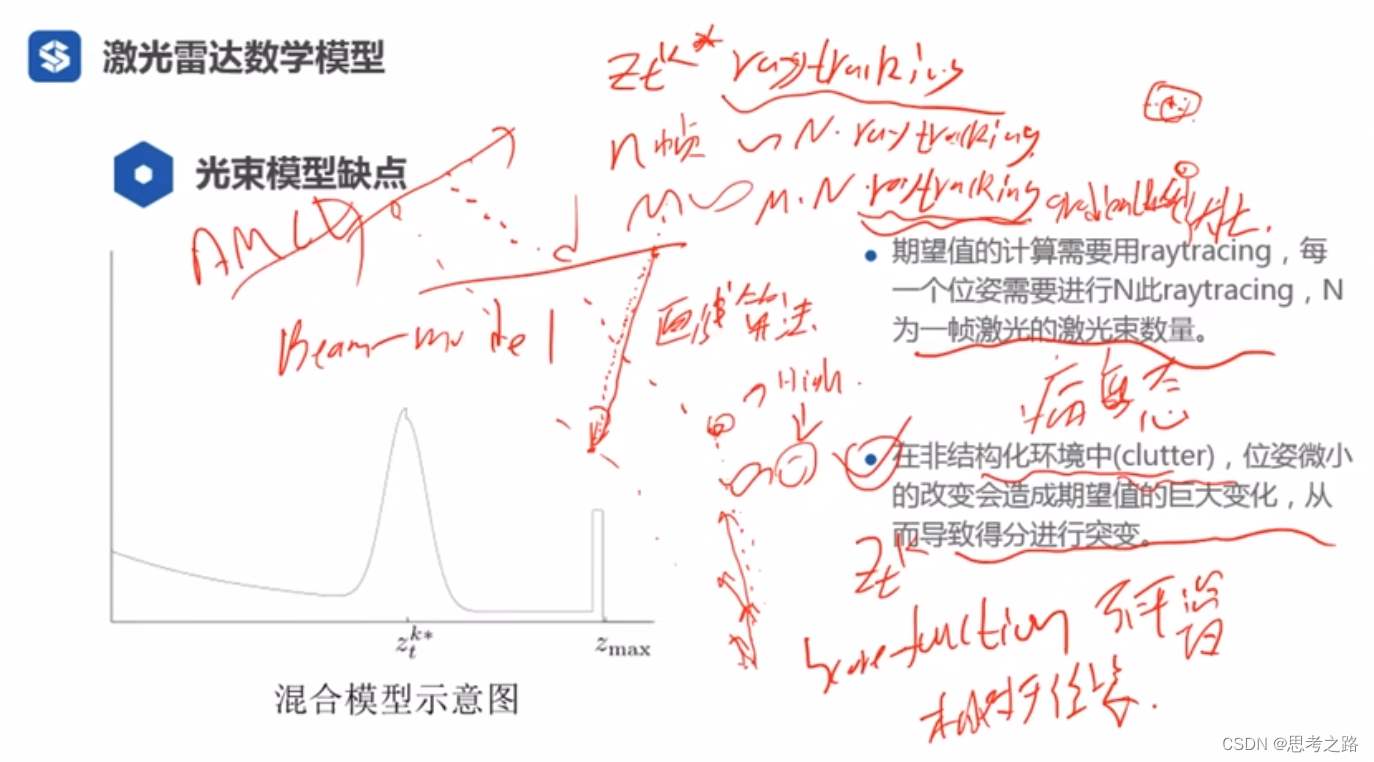 激光雷达数学模型
Zt^k* raytracking
n帧 N·raytracking
光束模型缺点
M M·N·raytracking
AMCL
d
期望值的计算需要用raytracing，每
一个位姿需要进行N此raytracing，N
为一帧激光的激光束数量。
Beam-model
画线算法
High
病
态
在非结构化环境中(clutter)，位姿微小
的改变会造成期望值的巨大变化，从
而导致得分进行突变。
Zt^k
Score-function 不平滑
相对于位姿.
z_t^{k*}
z_max
混合模型示意图
CSDN @思考之路